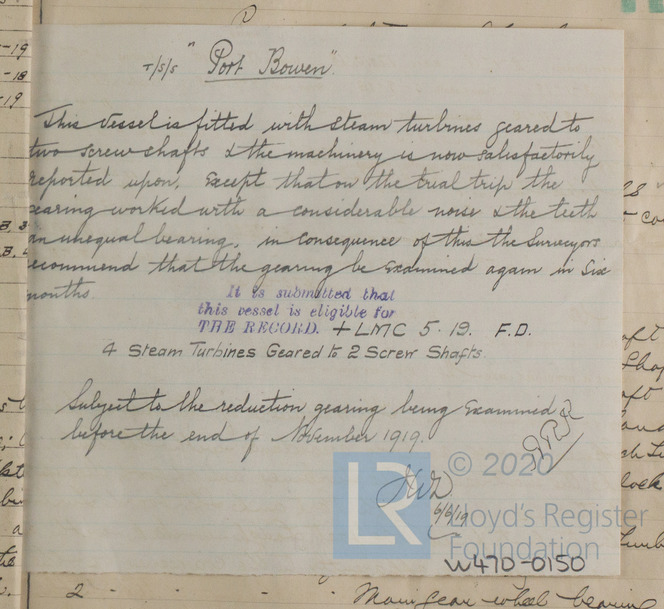 T/S/S "Port Bowen".
This vessel is fitted with steam turbines geared to
two screw shafts & the machinery is now satisfactorily
reported upon, except that on the trial trip the
gearing worked with a considerable noise & the teeth
an unequal bearing, in consequence of this the Surveyors
recommend that the gearing be examined again in six
months
It is submitted that
this vessel is eligible for
THE RECORD. + LMC 5.19. F.D.
4 Steam Turbines Geared to 2 Screw Shafts.
Subject to the reduction gearing being examined
before the end of November 1919.
6/6/19
LR
© 2020
Lloyd's Register
Foundation
W470-0150
2 - - - Main gear wheel bearing